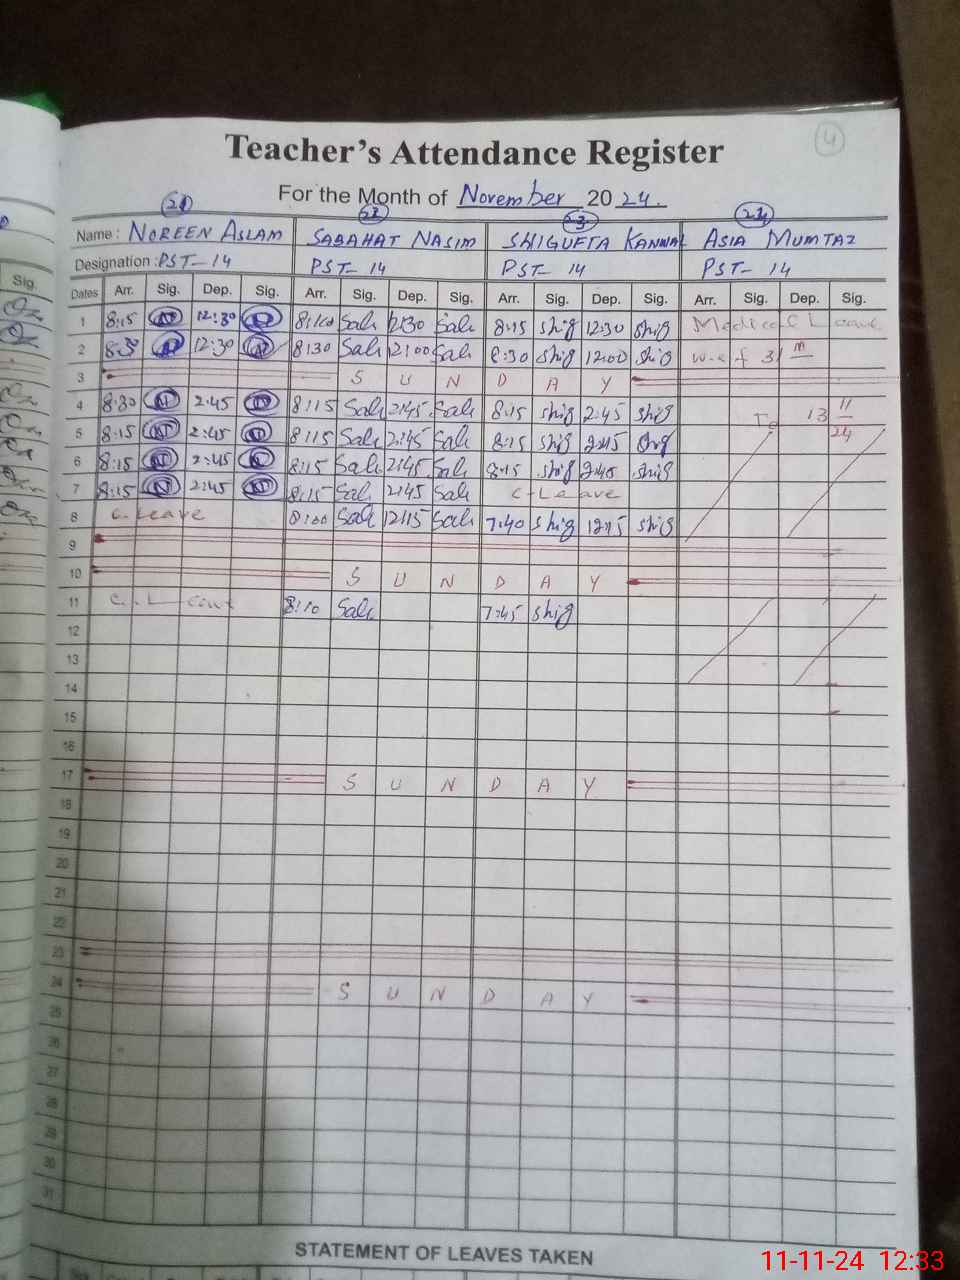 4
Teacher's Attendance Register
For the Month of November 2024.
21 22 23 24
Name : NOREEN ASLAM SABAHAT NASIM SHIGUFTA KANWAL ASIA MUMTAZ
Designation : PST-14 PST-14 PST-14 PST-14
Dates Arr. Sig. Dep. Sig. Arr. Sig. Dep. Sig. Arr. Sig. Dep. Sig. Arr. Sig. Dep. Sig.
1 8:15 12:30 8:10 Sab 12:30 Sab 8:15 Shig 12:30 Shig Medical Leave
2 12:30 8:30 Sab 12:00 Sab 8:30 Shig 12:00 Shig w.e.f 31
3 S U N D A Y
4 8:30 2:45 8:15 Sab 2:45 Sab 8:15 Shig 2:45 Shig To 13 11/24
5 8:15 2:45 8:15 Sab 2:45 Sab 8:15 Shig 2:45 Shig
6 8:15 2:45 8:15 Sab 2:45 Sab 8:15 Shig 2:45 Shig
7 8:15 2:45 8:15 Sab 2:45 Sab C-Leave
8 C. Leave 8:00 Sab 12:15 Sab 7:40 Shig 12:15 Shig
9
10 S U N D A Y
11 8:10 Sab 7:45 Shig
12
13
14
15
16
17 S U N D A Y
18
19
20
21
22
23
24 S U N D A Y
25
26
27
28
29
30
31
STATEMENT OF LEAVES TAKEN
Sig.
11-11-24 12:33